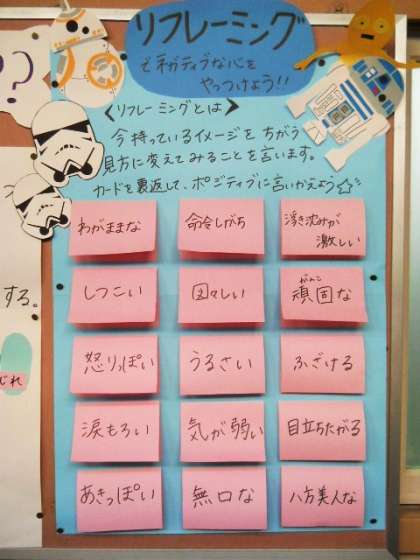 リフレーミング
でネガティブな心を
やっつけよう!!
??
<リフレーミングとは>
今持っているイメージをちがう
見方に変えてみることを言います。
カードを裏返して、ポジティブに言いかえよう☆
わがままな
命令しがち
浮き沈みが
激しい
しつこい
図々しい
がんこ
頑固な
する。
怒りっぽい
うるさい
ふざける
じれ
涙もろい
気が弱い
目立ちたがる
あきっぽい
無口な
八方美人な